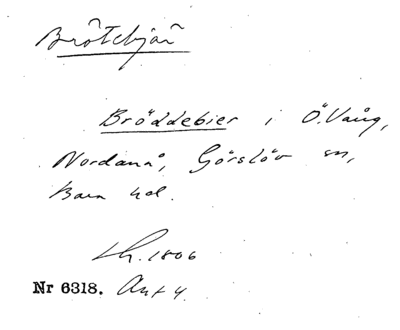 Brötebjär
Bröddebier i Ö. Vång,
Nordanå, Görslöv sn,
Bara hd.
Lh. 1806
Nr 6318. Akt 4.